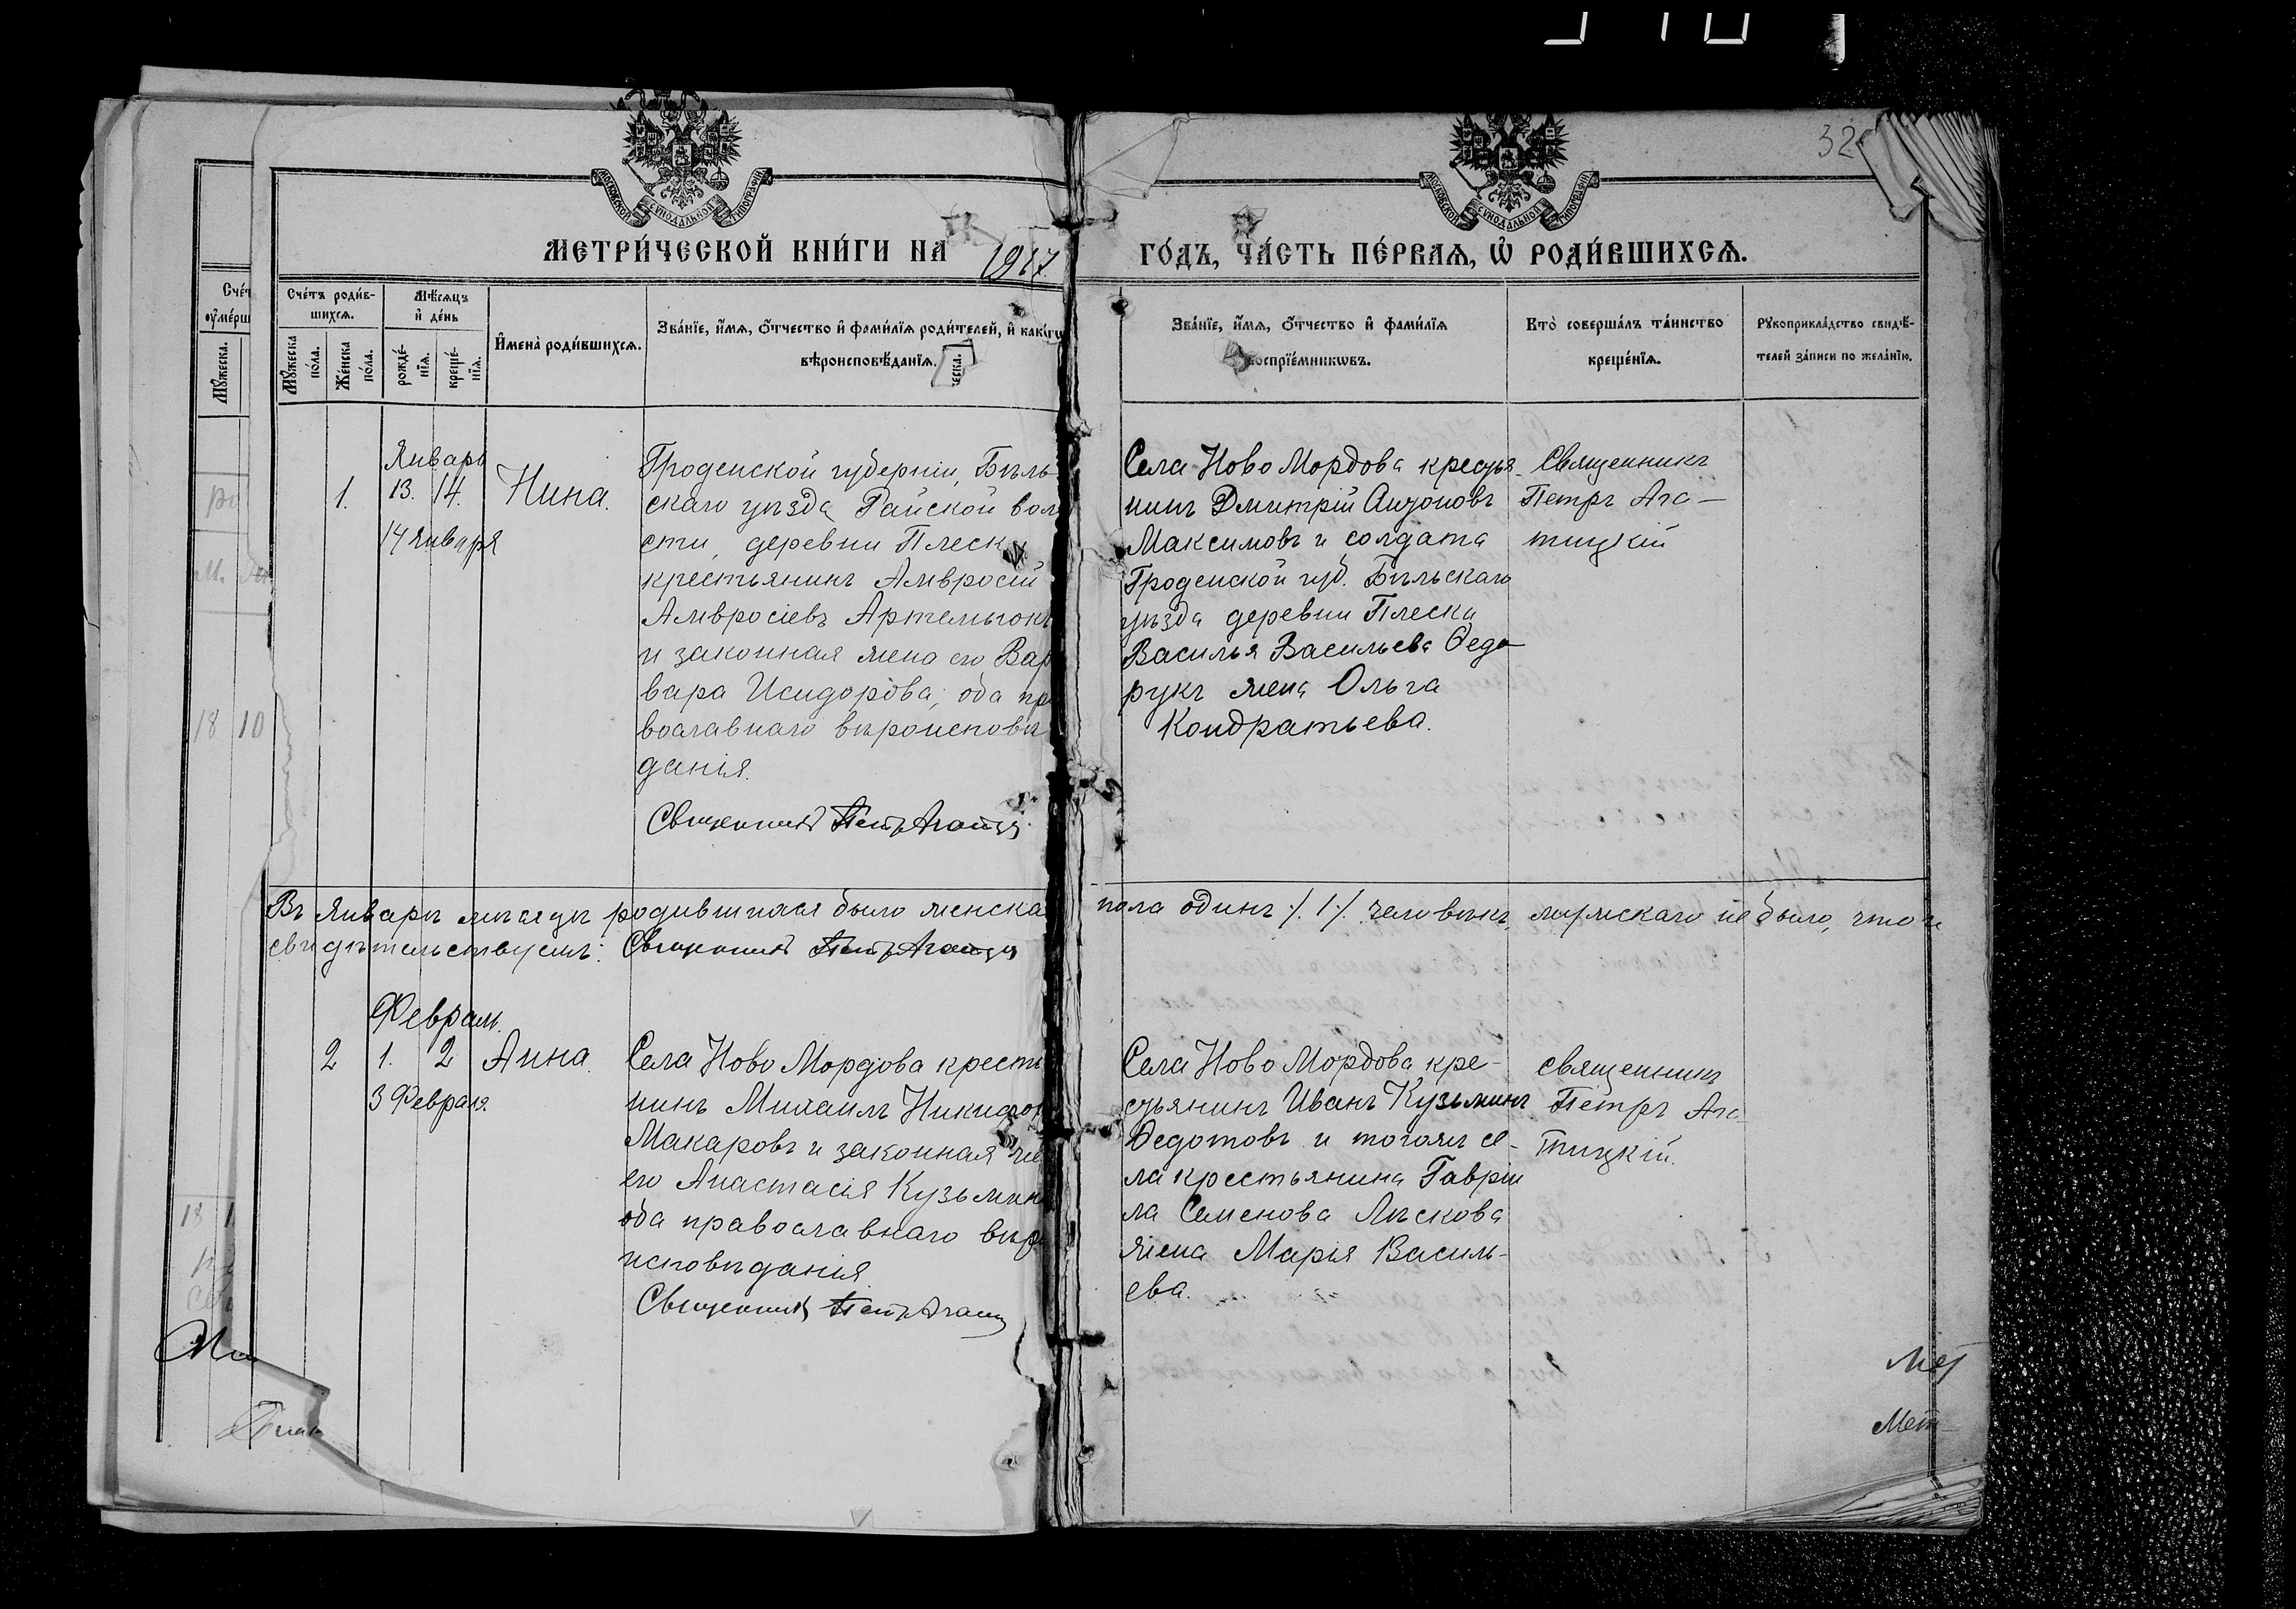 32
МОСКОВСКОЙ СУНОДАЛЬНОЙ ТИПОГРАФІИ
МОСКОВСКОЙ СУНОДАЛЬНОЙ ТИПОГРАФІИ
МЕТРИ́ЧЕСКОЙ КНИ́ГИ НА 1917
ГО́ДЪ, ЧА́СТЬ ПЕ́РВАЯ, Ѡ РОДИ́ВШИХСЯ.
Сче́тъ роди́в-
шихся.
Мужеска по́ла.
Же́нска по́ла.
Мѣ́сяцъ
и де́нь
рожде́-
нїя.
креще́-
нїя.
Имена̀ роди́вшихся.
Зва́нїе, и́мя, о́тчество и фами́лїя роди́телей, и
вѣроисповѣ́данїя.
Зва́нїе, и́мя, о́тчество и фами́лїя
воспрїе́мниковъ.
Кто̀ соверша́лъ та́инство
креще́нїя.
Рукоприкла́дство свидѣ́-
телей за́писи по жела́нїю.
Январь
1. 13. 14. Нина.
14 января
Гроденской губерніи, Бѣль-
скаго уѣзда Райской вол
сти, деревни Плески
крестьянинъ Амвросій
Амвросіевъ Артемюкъ
и законная жена его Вар
вара Исидорова; оба пра
вославнаго вѣроисповѣ
данія.
Священникъ Петръ
Села Ново Мордова крестья-
нинъ Дмитрій Антоновъ
Максимовъ и солдата
Гроденской губ. Бѣльскаго
уѣзда деревни Плески
Василья Васильева Ѳедо
рукъ жена Ольга
Кондратьева.
Священникъ
Петръ Ага-
тицкій
Въ Январѣ мѣсяцѣ родившихся было женска пола одинъ /. 1 /. человѣкъ, мужскаго не было, что и
свидѣтельствуемъ: Священникъ Петръ
Февраль.
2 1. 2 Анна.
3 Февраля.
Села Ново Мордова кресть
нинъ Михаилъ Никифор
Макаровъ и законная же
его Анастасія Кузьмин
оба православнаго вѣро
исповѣданія.
Священникъ Петръ
Села Ново Мордова кре-
стьянинъ Иванъ Кузьминъ
Ѳедотовъ и тогожъ се-
ла крестьянина Гаврiи
ла Семенова Лѣскова
жена Марія Василь-
ева.
священникъ
Петръ Ага-
тицкій.
18 10
Мет